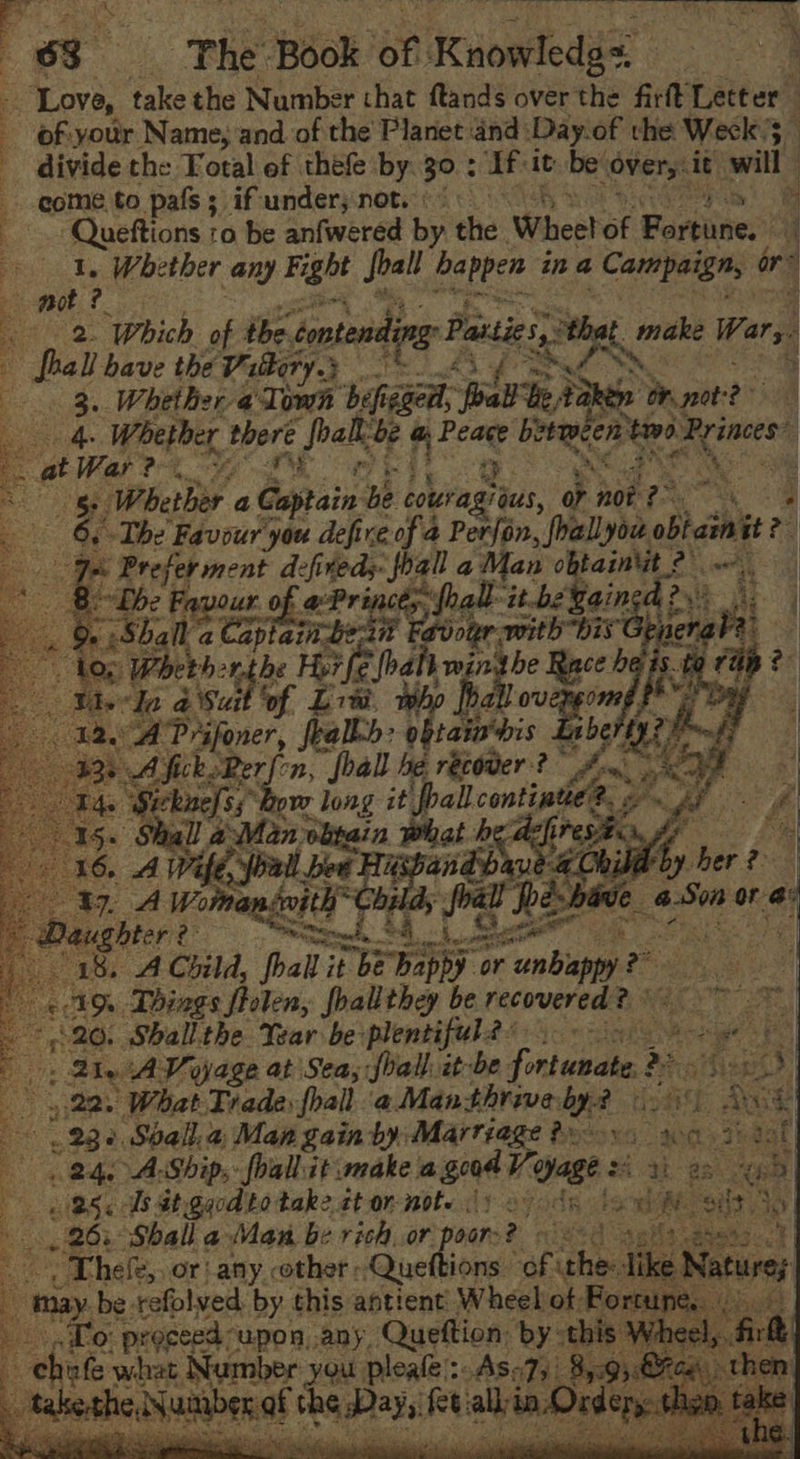 68 The Book of Knowledge.
Love, take the Number that ſtands over the firſt Letter
of your Name, and of the Planet and Day of the Week;
divide the Total of theſe by 30 : If it be over, it will
come to paſs; if under, not.
Queſtions to be anſwered by the Wheel of Fortune.
1. Whether any Fight ſhall happen in a Campaign, or
not ?
2. Which of the contending Parties, that make War,
ſhall have the Victory.
3. Whether a Town beſieged, ſhall be taken or not?
4. Whether there ſhall be a Peace between two Princes
at War ?
5. Whether a Captain be couragious, or not ?
6. The Favour you deſire of a Perſon, ſhall you obtain it ?
7. Preferment deſired, ſhall a Man obtain it ?
8. The Favour of a Princes, ſhall it be gained ?
9. Shall a Captain be in Favour with his General?
10. Whether the Horſe ſhall win the Race he is to run ?
11. In a Suit of Law, who ſhall overcome ?
12. A Priſoner, ſhall he obtain his Liberty ?
13. A ſick Perſon, ſhall he recover ?
14. Sickneſs, how long it ſhall continue ?
15. Shall a Man obtain what he deſires
16. A Wife, ſhall her Husband have a Child by her ?
17. A Woman with Child, ſhall ſhe have a Son or a
Daughter ?
18. A Child, ſhall it be happy or unhappy ?
19. Things ſtolen, ſhall they be recovered ?
20. Shall the Year be plentiful ?
21. A Voyage at Sea, ſhall it be fortunate ?
22. What Trade ſhall a Man thrive by ?
23. Shall a Man gain by Marriage ?
24. A Ship, ſhall it make a good Voyage :
25. Is it good to take it or not.
26. Shall a Man be rich or poor ?
Theſe, or any other Queſtions of the like Nature;
may be reſolved by this antient Wheel of Fortune.
To proceed upon any Queſtion by this Wheel, firſt
chuſe what Number you pleaſe : As 7, 8, 9, &c. then
take the Number of the Day, ſet all in Order, then take
the